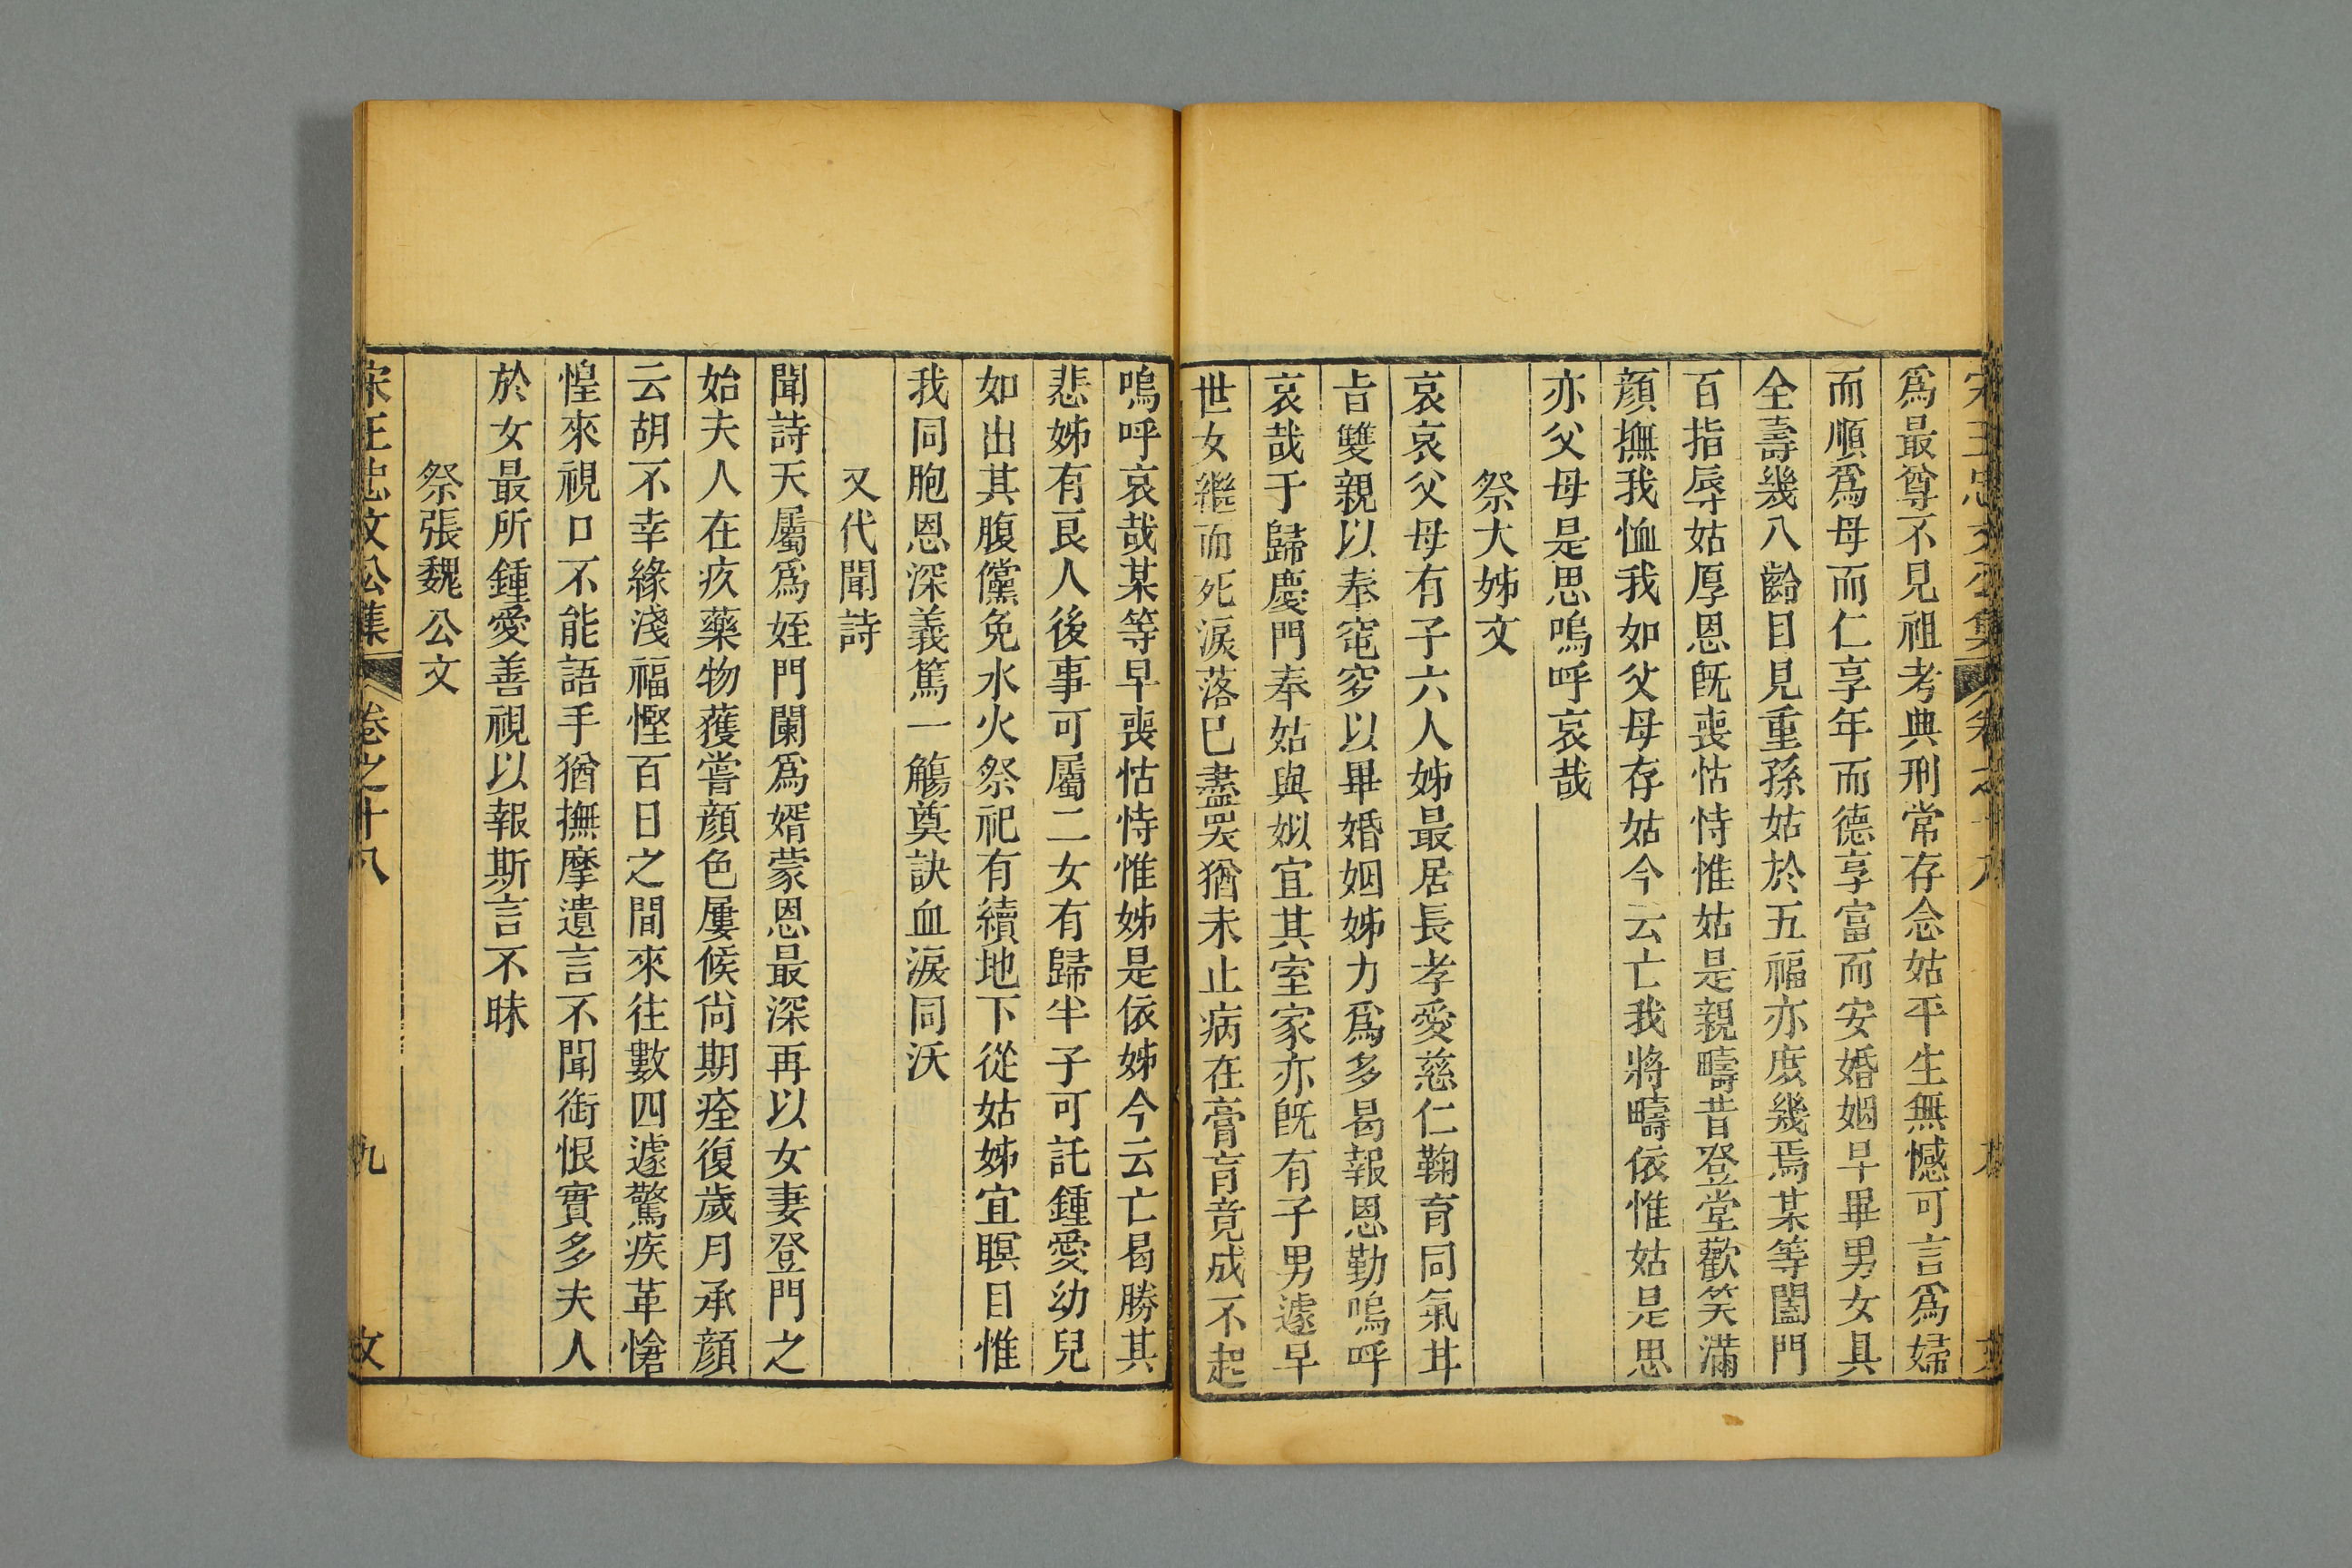 爲最尊不見祖考典刑常存念姑平生無憾可言爲婦
而順爲母而仁享年而德享富而安婚姻早畢男女具
全壽幾八齡目見重孫姑於五福亦庶幾焉某等闔門
百指辱姑厚恩旣喪怙恃惟姑是親疇昔登堂歡笑滿
顏撫我恤我如父母存姑今云亡我將疇依惟姑是思
亦父母是思嗚呼哀哉
祭大姊文
哀哀父母有子六人姊最居長孝愛慈仁鞠育同氣甘
旨雙親以奉窀穸以畢婚姻姊力爲多曷報恩勤嗚呼
哀哉于歸慶門奉姑與姒宜其室家亦旣有子男遽早
世女繼而死淚落已盡哭猶未止病在膏肓竟成不起
嗚呼哀哉某等早喪怙恃惟姊是依姊今云亡曷勝其
悲姊有良人後事可屬二女有歸半子可託鍾愛幼兒
如出其腹儻免水火祭祀有續地下從姑姊宜瞑目惟
我同胞恩深義篤一觴奠訣血淚同沃
又代聞詩
聞詩天屬爲姪門闌爲婿蒙恩最深再以女妻登門之
始夫人在疚藥物獲嘗顏色屢候尙期痊復歲月承顏
云胡不幸緣淺福慳百日之間來往數四遽驚疾革愴
惶來視口不能語手猶撫摩遺言不聞銜恨實多夫人
於女最所鍾愛善視以報斯言不昧
祭張魏公文
宋王忠文公集 卷之十八 九 文